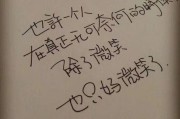 也許一个人
在真正无可奈何的時候
除了微笑
也只好微笑了